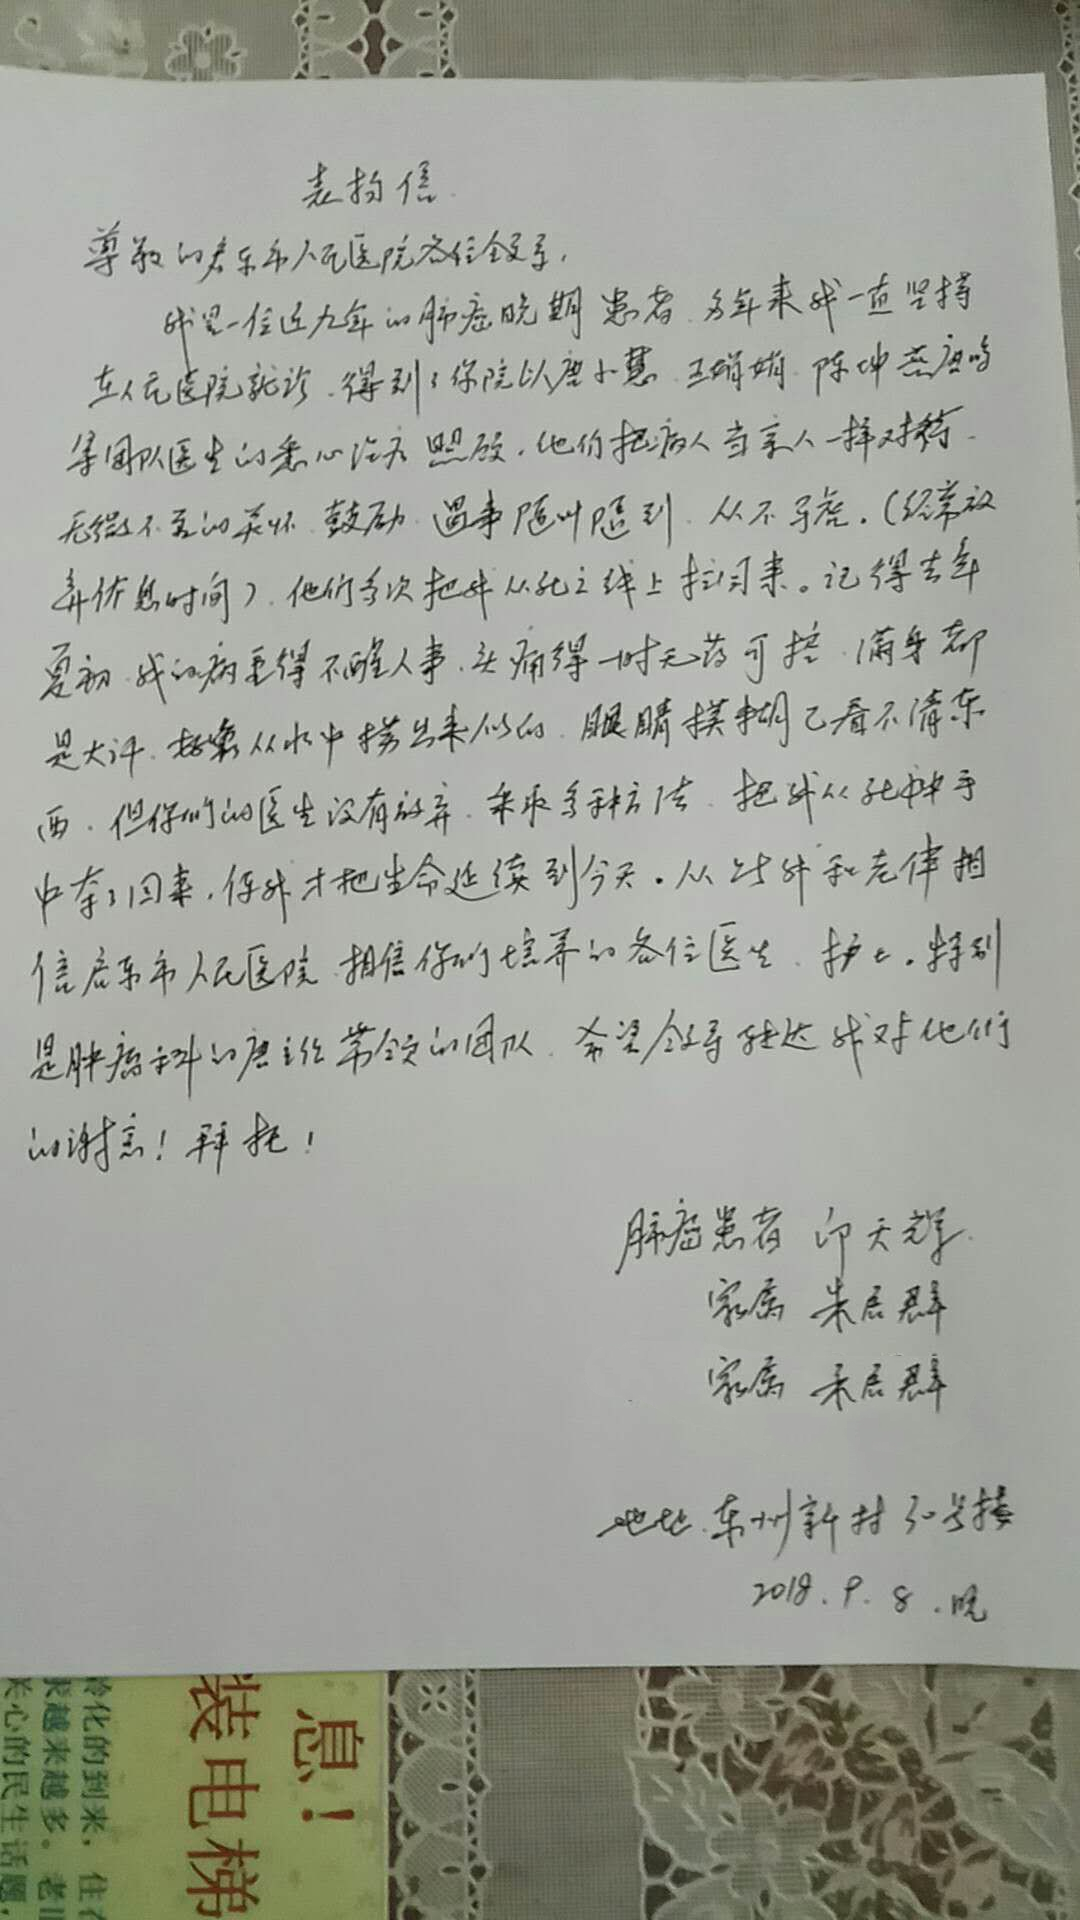 表扬信
尊敬的启东市人民医院各位领导,
我是一位近九年的肺癌晚期患者、多年来我一直坚持
在人民医院就诊、得到了你院以唐小慧、王娟娟、陈坤燕唐
等团队医生的悉心治疗照顾,他们把病人当亲人一样对待、
无微不至的关怀、鼓励、遇事随叫随到、从不。(经常放
弃休息时间),他们多次把我从死亡线上拉回来。记得去年
夏初、我的病重得不醒人事、头痛得一时无药可控、满身都
是大汗、好象从水中捞出来似的、眼睛模糊已看不清东
西、但你们的医生没有放弃、采取多种方法、把我从死神手
中夺了回来,使我才把生命延续到今天。从此我和老伴相
信启东市人民医院、相信你们培养的各位医生、护士。特别
是肿瘤科的唐主任带领的团队、希望领导转达我对他们
的谢意!拜托!
肺癌患者 印天辉
家属 朱启群
家属 朱启群
地址、东洲新村30号楼
2018.9.8.晚
息!
装电梯
龄化的到来,住
求越来越多。老旧
关心的民生话题,